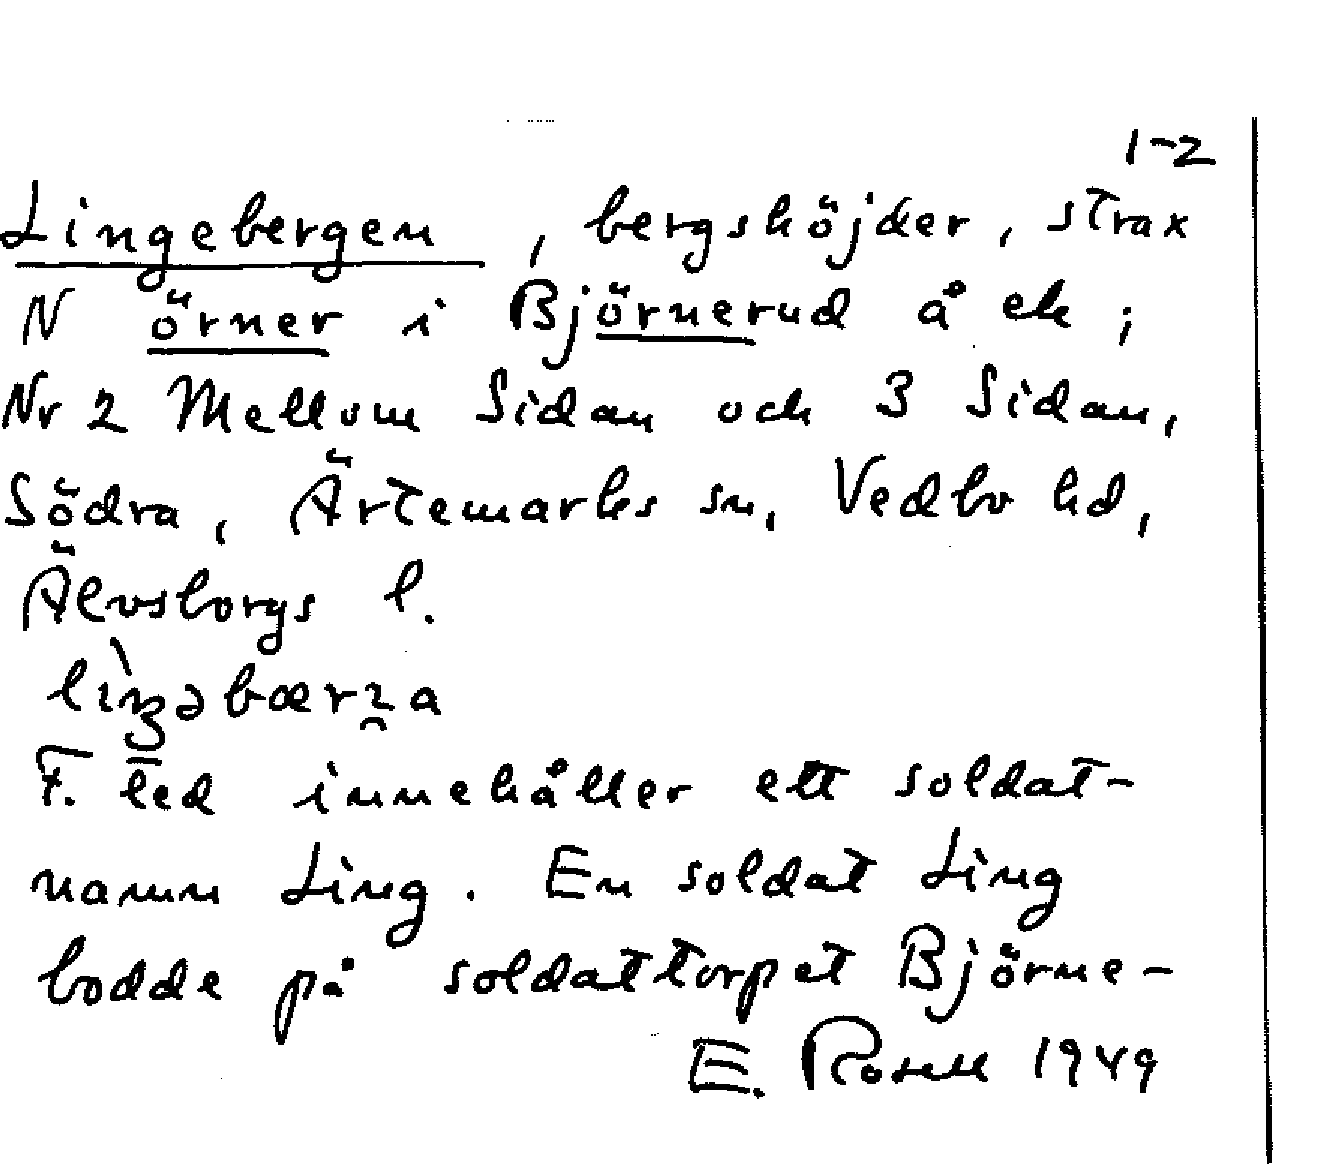 1-2
Lingebergen, bergshöjder, strax
N örner i Björnerud å ek;
Nr 2 Mellom Sidan och 3 Sidan,
Södra, Ärtemarks sn, Vedbo hd,
Älvsborgs l.
F. led innehåller ett soldat-
namn Ling. En soldat Ling
bodde på soldattorpet Björne-
E. Rosell 1949